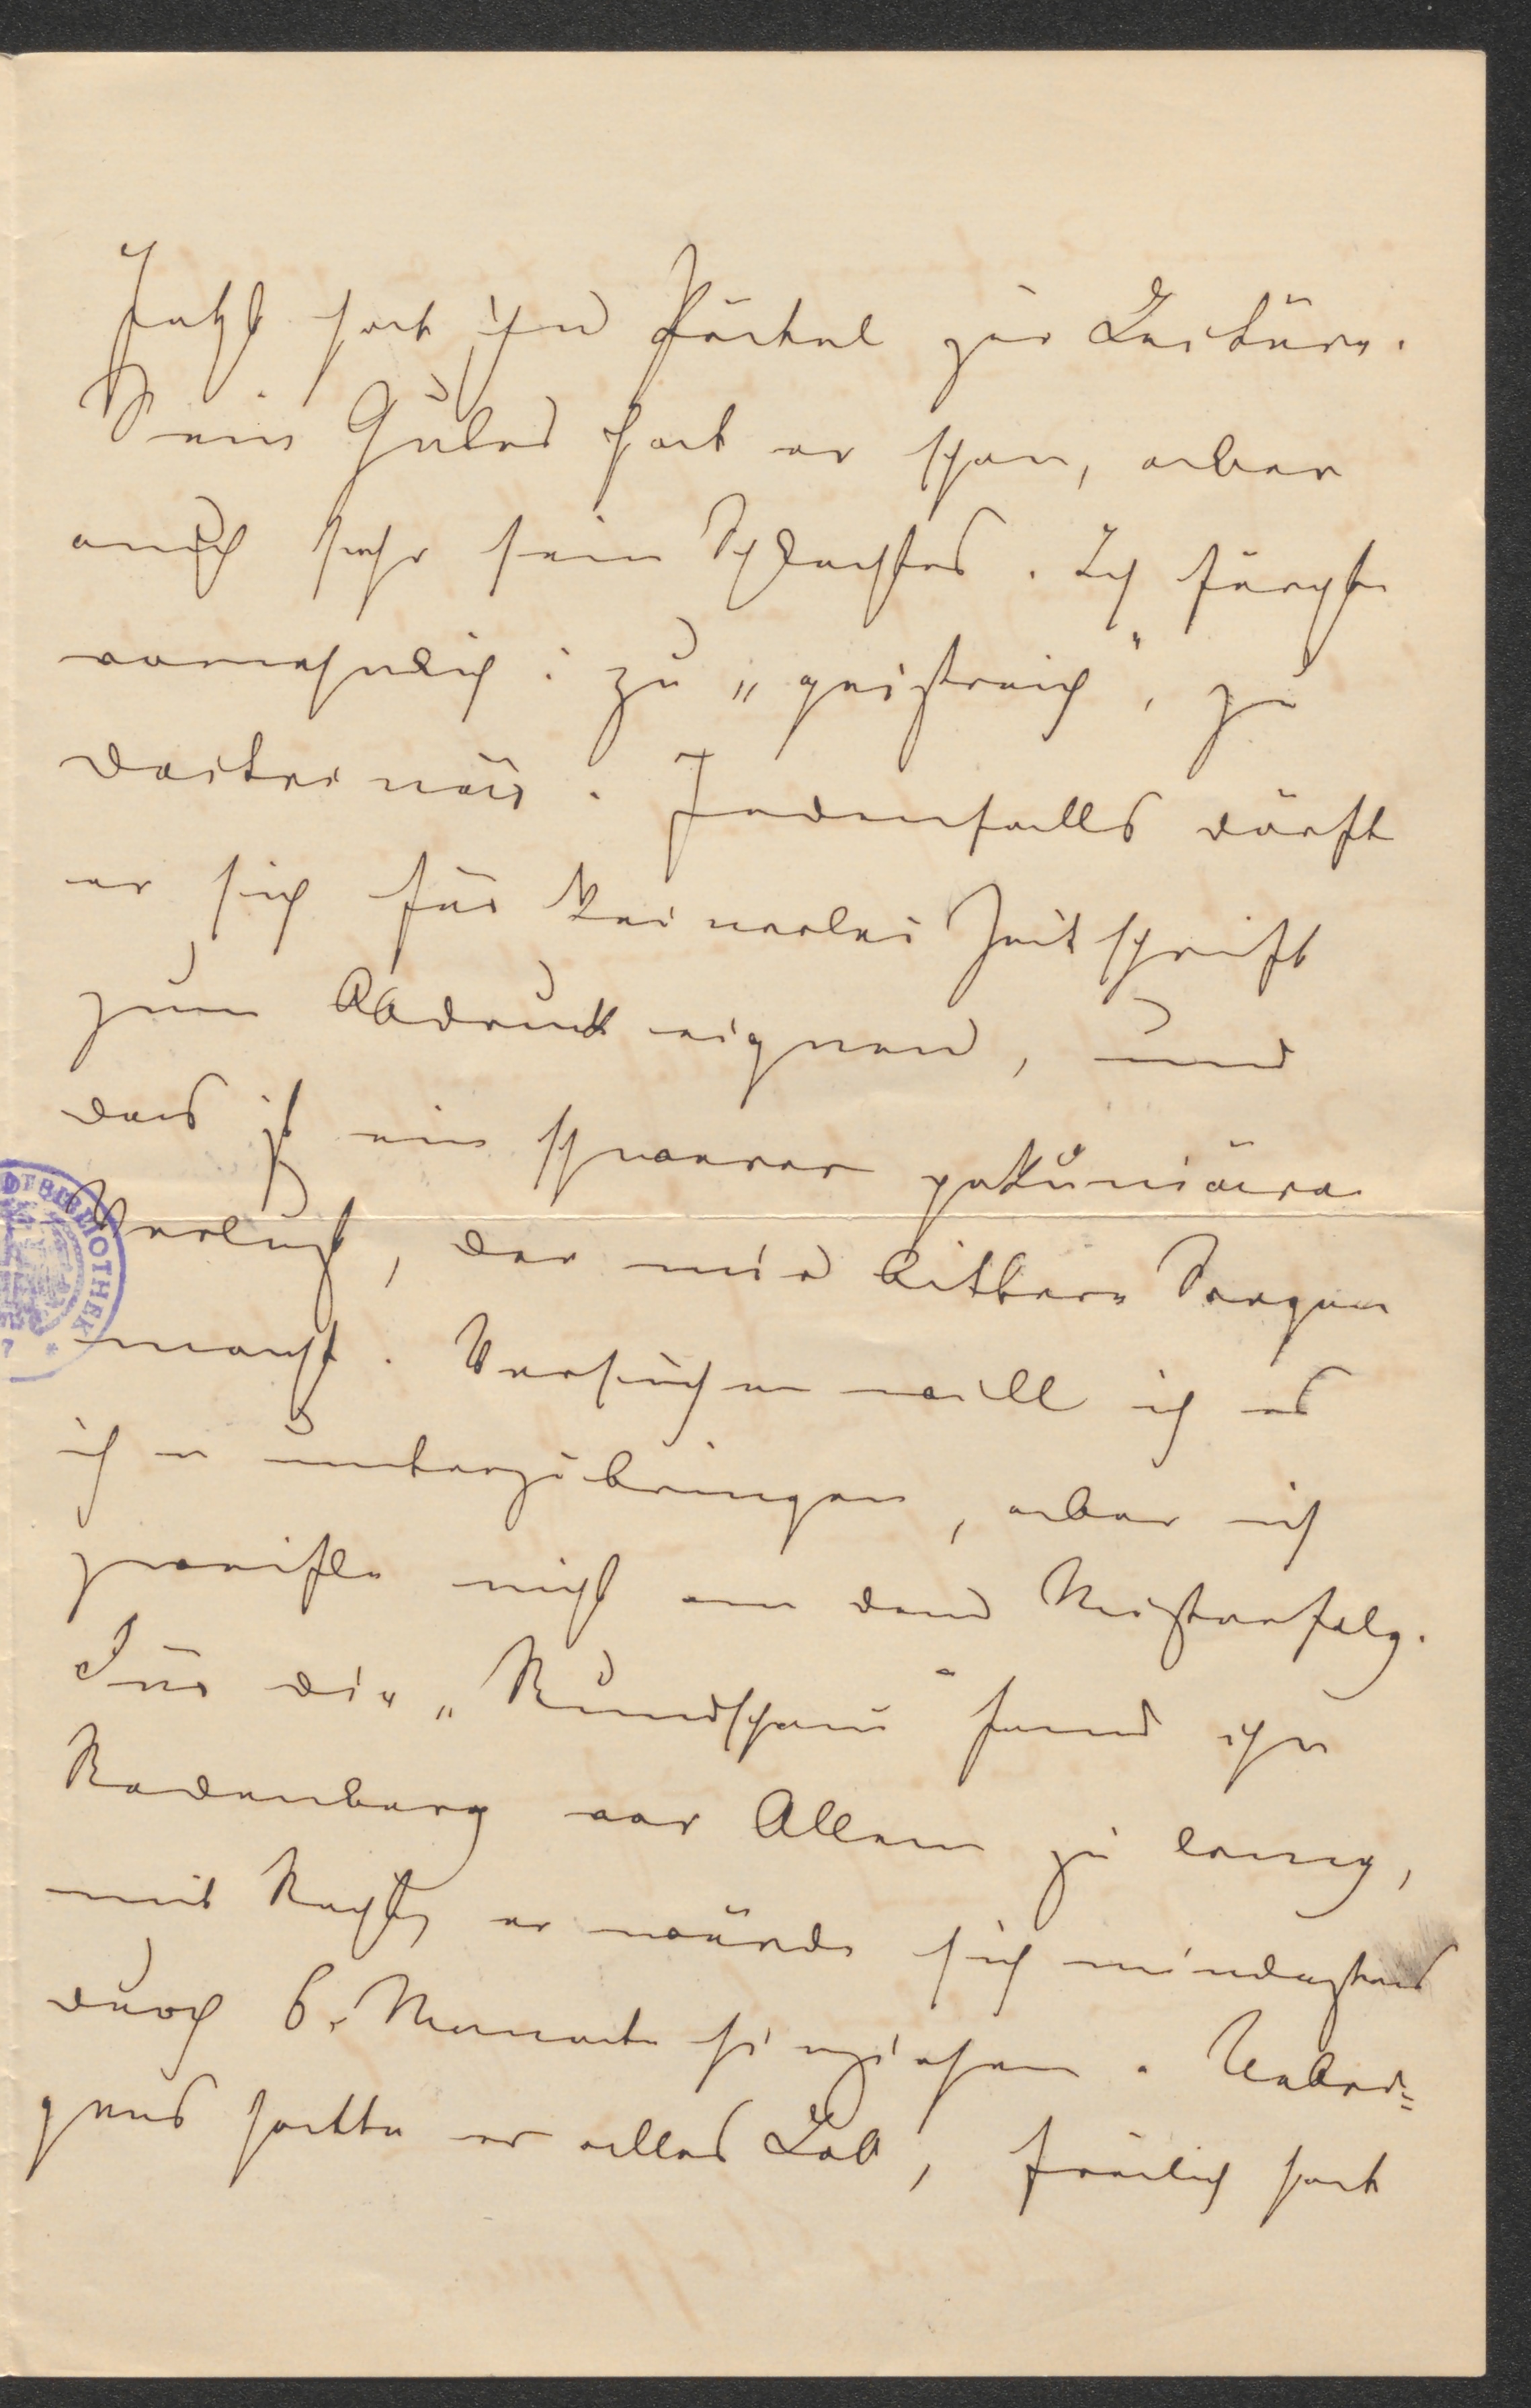 Jetzt hat ihn Päetel zur Lectüre.
Sein Gutes hat er schon, aber
auch sehr sein Schlechtes. Ich fürchte
vornehmlich: zu „geistreich“, zu
doctrinär. Jedenfalls dürft
er sich für keinerlei Zeitschrift
zum Abdruck eignen, und
das ist ein schwerer pekuniärer
Verlust, der mir bittere Sorgen
macht. Versuchen will ich es
ihn unterzubringen, aber ich
zweifle nicht an dem Misserfolg.
Für die „Rundschau“ fand ihn
Rodenberg vor Allem zu lang,
mit Recht, er würde sich mindestens
durch 6. Monate hinziehen. Uebri=
gens hatte er alles Lob, freilich hat
DTBIBLIOTHEK